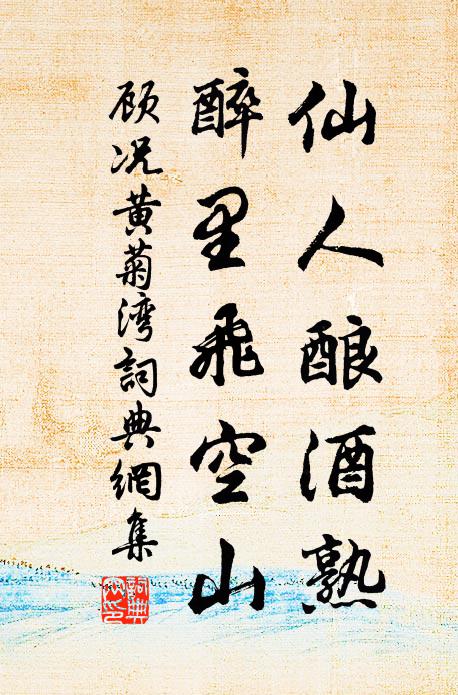 仙人酿酒熟
醉里飛空山
顾况黄菊湾詞典網集